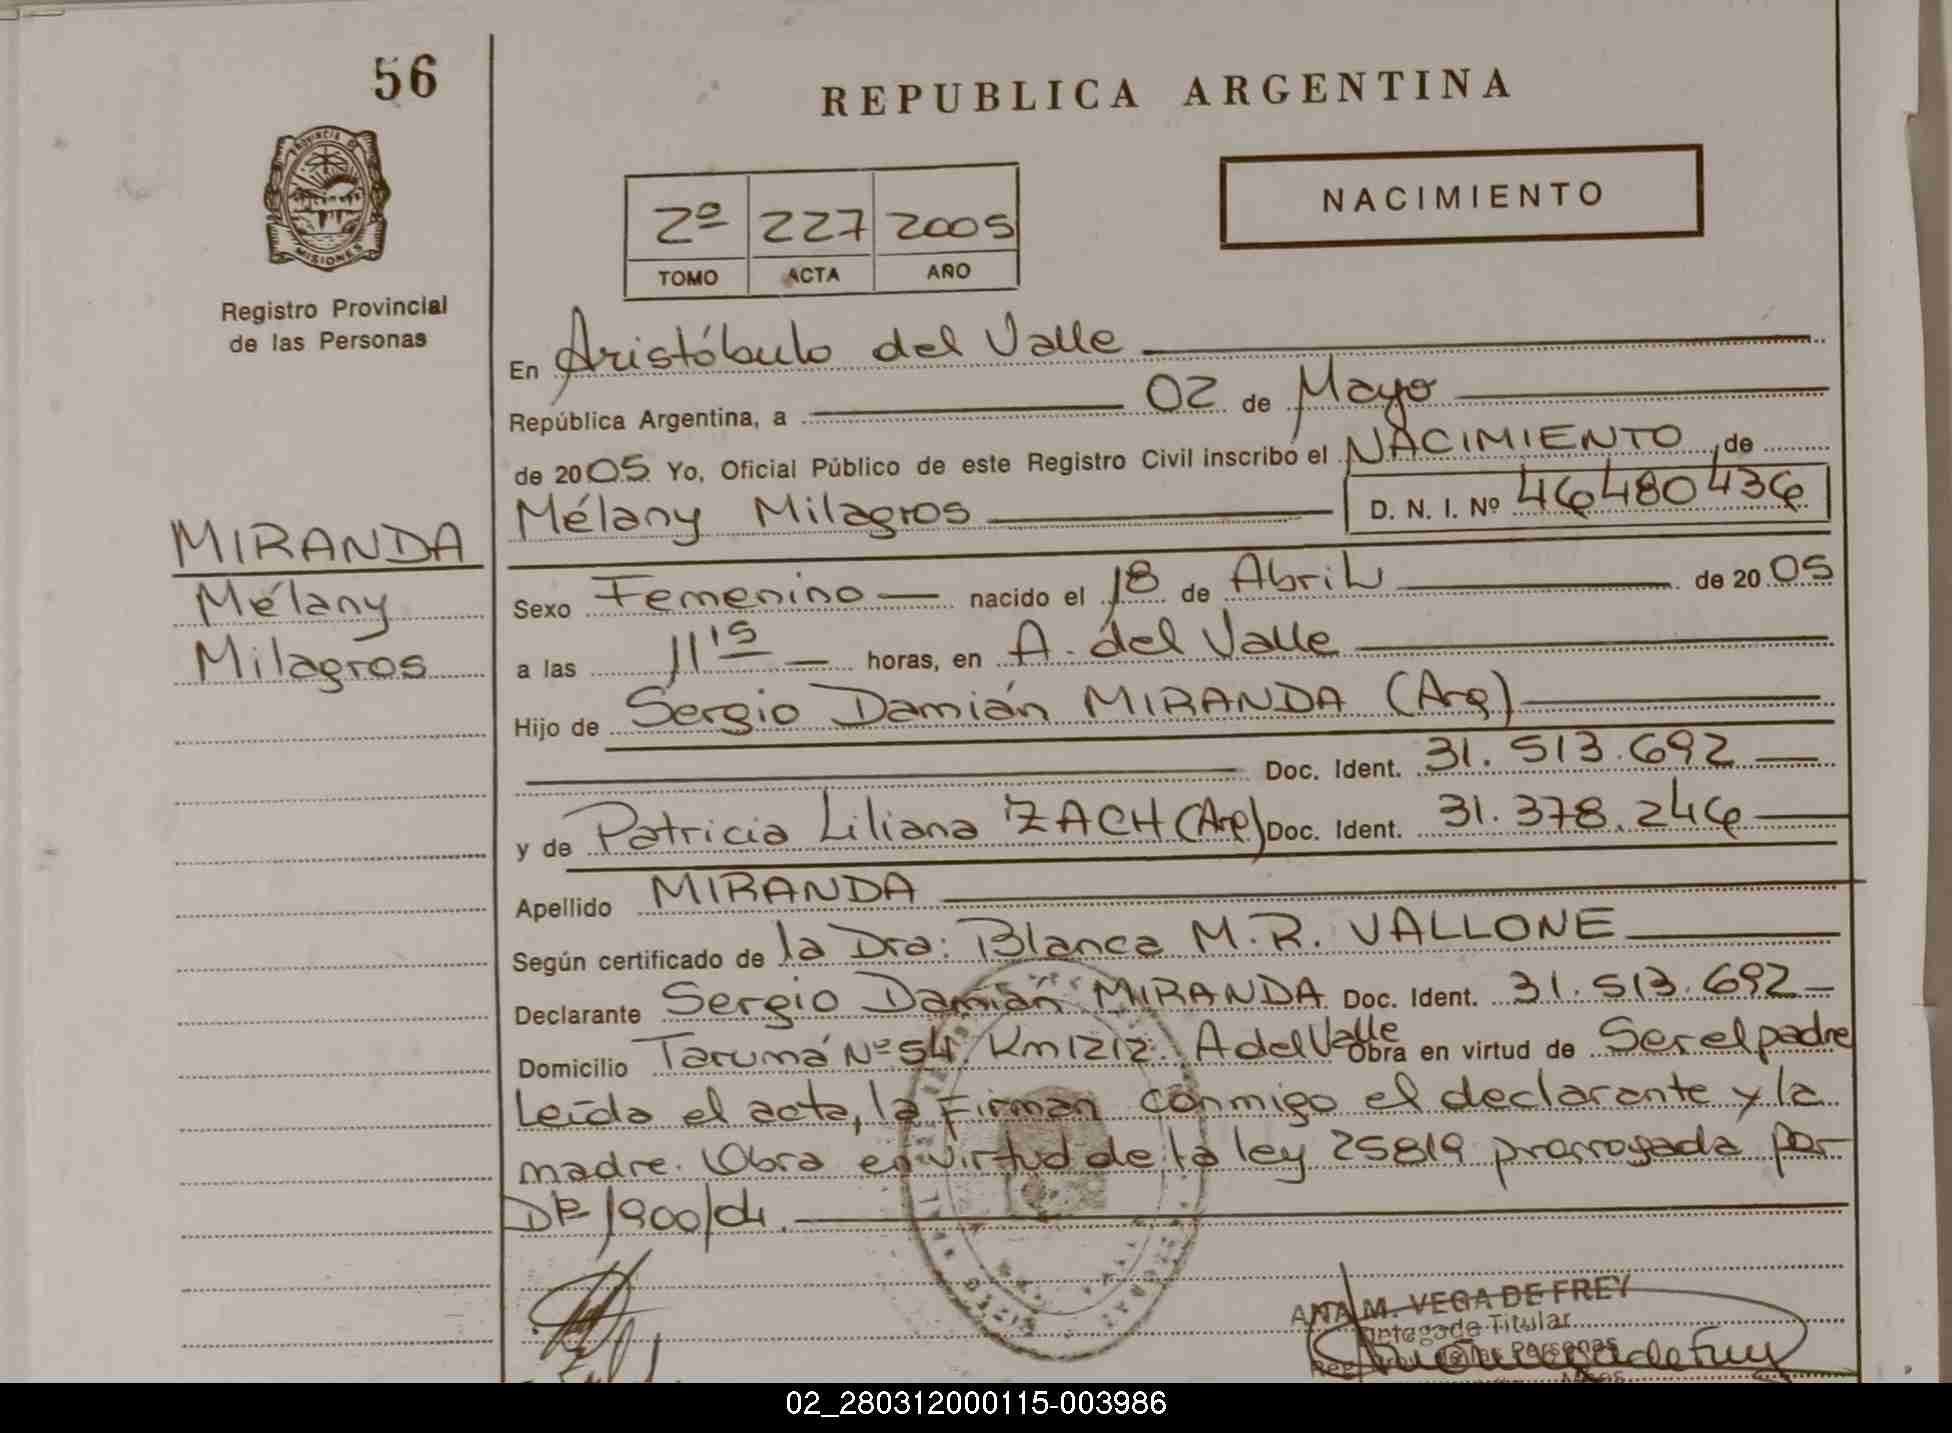 56
REPUBLICA ARGENTINA
PROVINCIA DE
MISIONES
NACIMIENTO
2º 227 2005
TOMO ACTA AÑO
Registro Provincial
de las Personas
En Aristóbulo del Valle
República Argentina, a 02 de Mayo
de 2005. Yo, Oficial Público de este Registro Civil inscribo el NACIMIENTO, de
Mélany Milagros D. N. I. Nº 46480436
MIRANDA
Mélany
Milagros
Sexo Femenino nacido el 18 de Abril de 2005
a las 11'15 horas, en A. del Valle
Hijo de Sergio Damián MIRANDA (Arg)
Doc. Ident. 31.513.692
y de Patricia Liliana ZACH (Arg) Doc. Ident. 31.378.246
Apellido MIRANDA
Según certificado de la Dra: Blanca M.R. VALLONE
Declarante Sergio Damián MIRANDA Doc. Ident. 31.513.692
Domicilio Tarumá Nº 54. Km 1212. A del Valle Obra en virtud de Ser el padre
Leída el acta, la Firman conmigo el declarante y la
madre. Obra en virtud de la ley 25819 prorrogada por
1900/04.
ANA M. VEGA DE FREY
Delegada Titular
las Personas
02_280312000115-003986